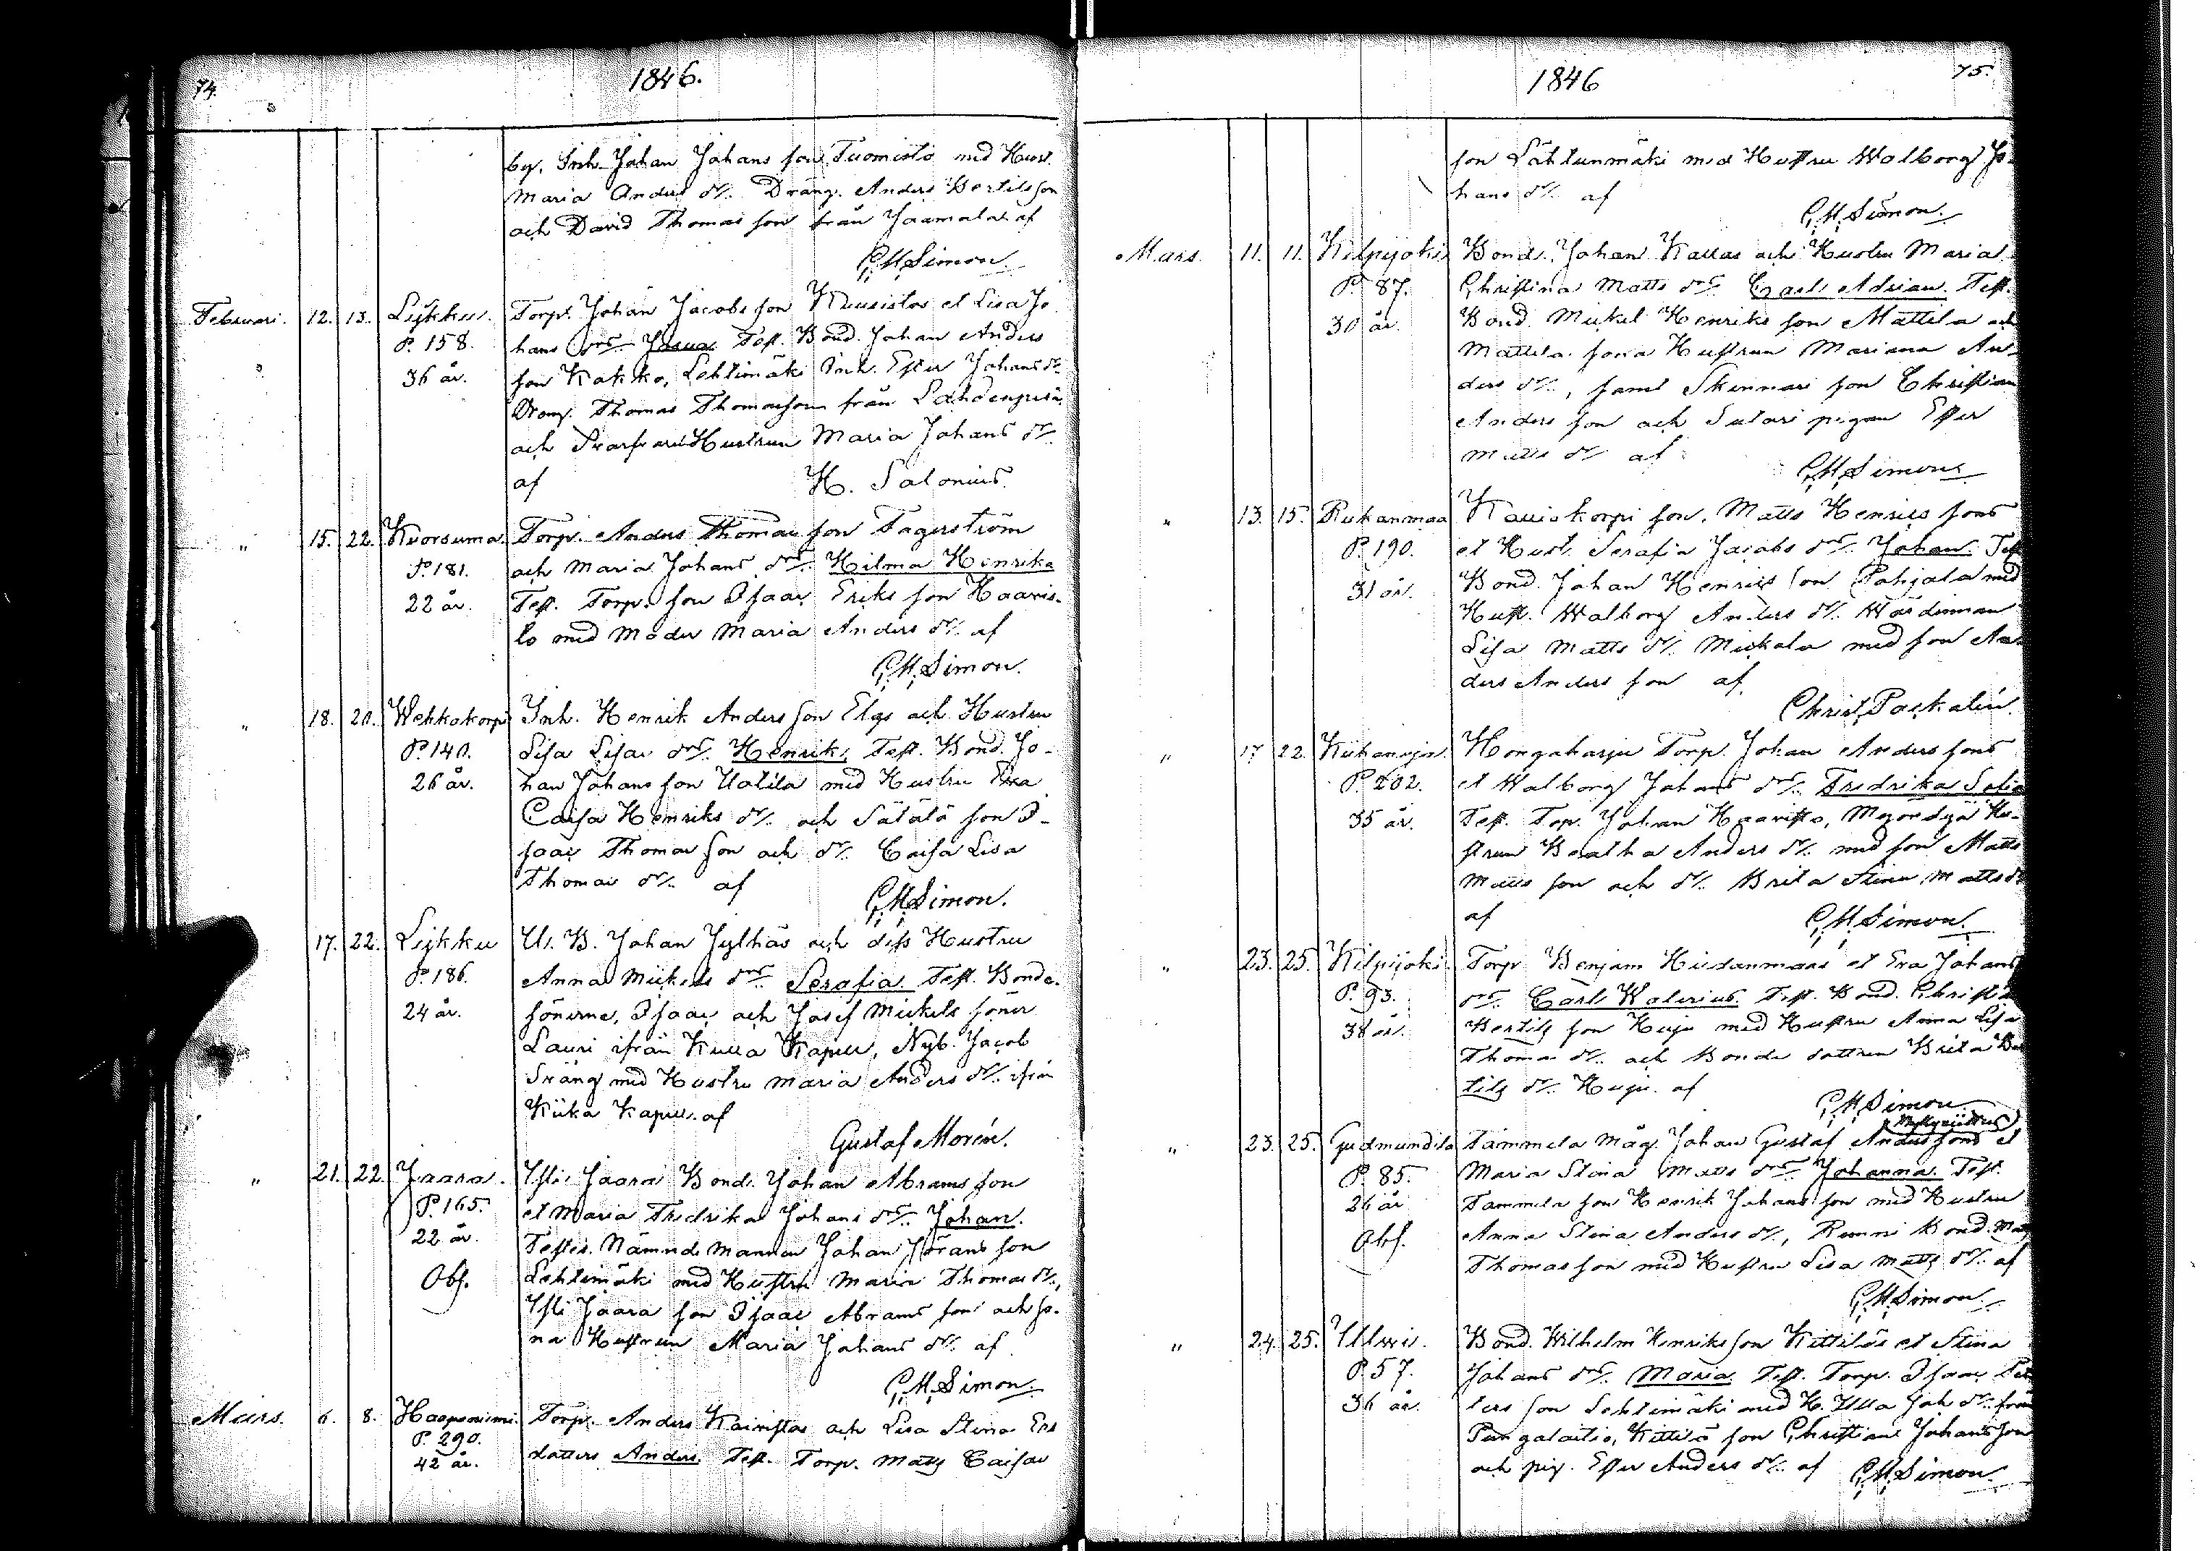 74.
1846.
by. Inh. Johan Johans son Tuomisto med Hust.
Maria Anders dr. Dräng. Anders Bertils son
och David Thomas son från Jaamala af
C.M. Simon.
Februari. 12. 13. Lejkku. Torp. Johan Jacobs son Kuusistos et Lisa Jo
P. 158. hans dr Josua Test. Bond. Johan Anders
36 år. son Kakko, Lehtimäki Inh. Ester Johans dr.
Dräng. Thomas Thomasson från Lahdenperä
och Hustrun Maria Johans dr.
af H. Salonius.
" 15. 22. Kuorsuma. Torp. Anders Thomas son Fagerström
P. 181. och Maria Johans dr. Hilma Henrika
22 år. Test. Torp. son Isaac Eriks son Haavis-
to med Moder Maria Anders dr. af
C.M. Simon.
" 18. 20. Wehkakorpi Inh. Henrik Anders son Elgs och Hustru
P. 140. Lisa Lisas dr. Henrik, Test. Bond. Jo-
26 år. han Johans son Uotila med Hustru Eva
Caisa Henriks dr. och Sätälä son I-
saac Thomas son och dr. Caisa Lisa
Thomas dr. af
C.M. Simon.
17. 22. Lejkku U. B. Johan Jylhäs och dess Hustru
P. 186. Anna Mickels dr Serafia Test. Bonde.
24 år. sönerne, Isaac och Josef Mickels söner
Lauri ifrån Kulla Kapell, Nyb. Jacob
Sräng med Hustru Maria Anders dr. ifrån
Kiika Kapell. af
Gustaf Morén.
" 21. 22. Jaara. Ysti Jaara Bond. Johan Abrams son
P. 165. et Maria Fredrika Johans dr. Johan.
22 år. Testes. Nämnde mannen Johan Jörans son
Obs. Lehtimäki med Hustru Maria Thomas dr.,
Ysti Jaara son Isaac Abrams son och so-
na Hustrun Maria Johans dr. af
C.M. Simon.
Mars. 6. 8. Haaponiemi. Torp. Anders Kaivistos och Lisa Stina Ers
P. 290. datters Anders. Test. Torp. Matts Caisas
42 år.
75.
1846
son Lähtunmäki med Hustru Walborg Jo
hans dr. af
C.M. Simon.
Mars. 11. 11. Kilpijoki Bond. Johan Kallas och Hustru Maria
P. 87. Christina Matts dr Carl Adrian. Test.
30 år. Bond. Mickel Henriks son Mattila och
Mattila sona Hustrun Mariana An-
ders dr., samt Skinnari son Christian
Anders son och Sutari pigan Ester
Matts dr af
C.M. Simon
" 13. 15. Riukanmaa Kauiskorpi son, Matts Henrics sons
P. 190. et Hust. Serafia Jacobs dr. Johan. Test
31 år. Bond. Johan Henrics son Pohjala med
Hust. Walborg Anders dr. Wärdinnan
Lisa Matts dr. Mickala med son An-
ders Anders son af
Christ. Paskalin.
" 17 22. Kiukanoja. Hongaharju Torp. Johan Anders sons
P. 202. et Walborg Johans dr. Fredrika Sofia
35 år. Test. Top. Johan Haavisto, Hu-
strun Beatha Anders dr. med son Matts
Matts son och dr. Brita Stina Matts dr
af C.M. Simon.
" 23. 25. Kilpijoki Torp. Benjam Hiidanmaas et Eva Johans
P. 93. dr. Carl Walerius. Test. Bond. Christian
38 år. Bertils son Huju med Hustru Anna Lisa
Thomas dr. och Bonde dottren Brita Ber
tils dr. Huju. af
C.M. Simon
" 23. 25. Gudmundila Tammela Måg. Johan Gustaf Anders sons et
P. 85. Maria Stina Matts dr Johanna. Test.
26 år Tammela son Henrik Johans son med Hustru
Obs. Anna Stina Anders dr., Rummi Bond. Matts
Thomasson med Hustru Lisa Matts dr. af
C.M. Simon
" 24. 25. Ullwi. Bond. Wilhelm Henriks son Kittiläs et Stina
P. 57. Johans dr. Maria Test. Torp. Isaac Pet
36 år. ters son Lehtimäki med H. Ulla Joh dr. från
Pungalaitio, Kittilä son Christian Johans son
och pig. Ester Anders dr. af C.M. Simon